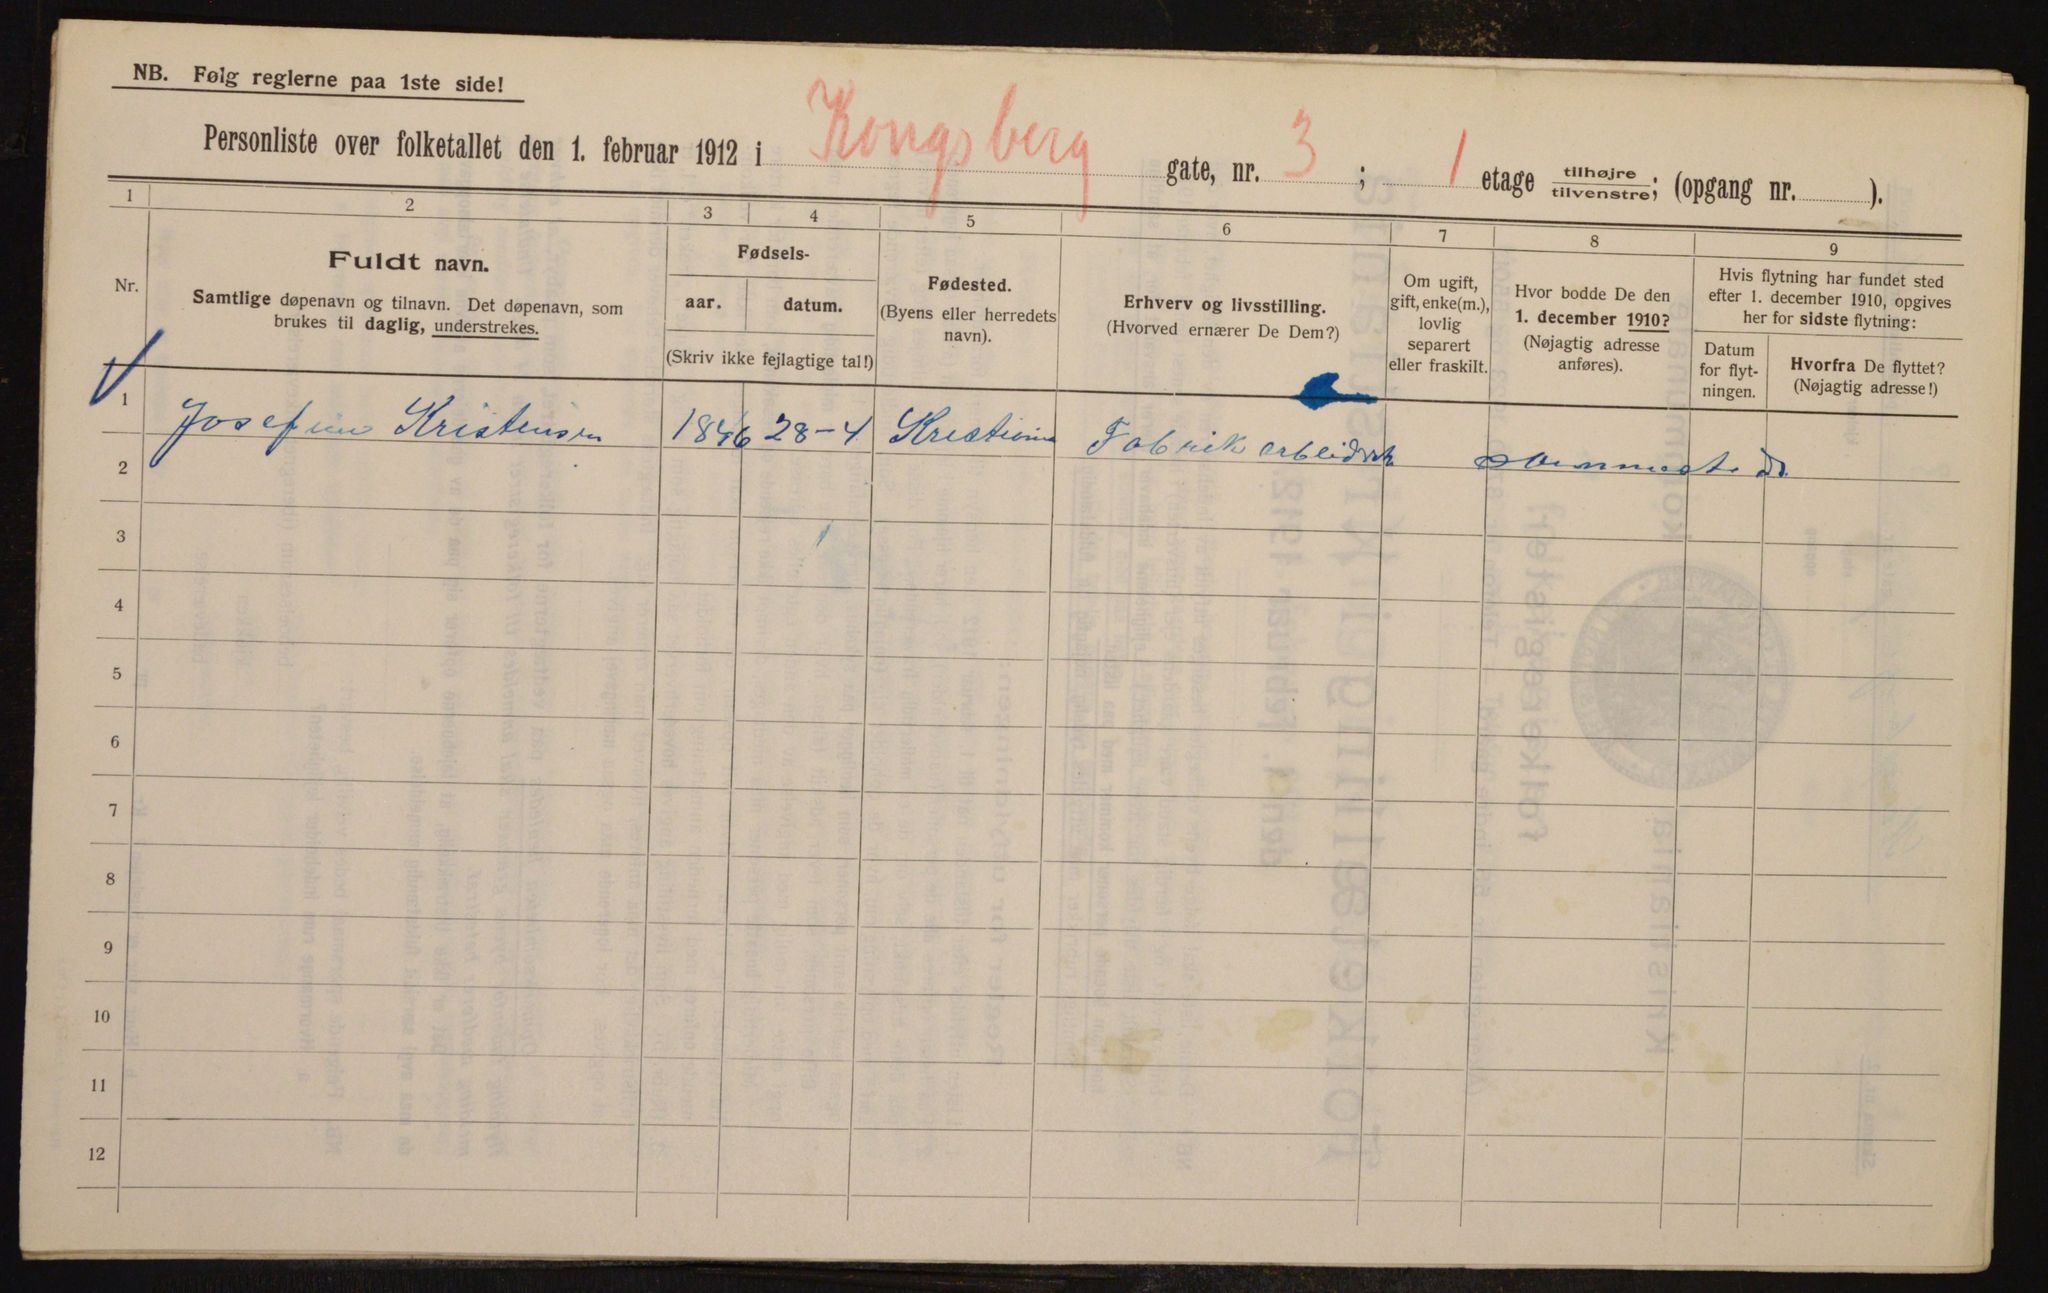 NB. Følg reglerne paa 1ste side!
Personliste over folketallet den 1. februar 1912 i Kongsberg gate, nr. 3 ; 1 etage tilhøjre tilvenstre; (opgang nr. ).
1 2 3 4 5 6 7 8 9
Nr.
Fuldt navn.
Samtlige døpenavn og tilnavn. Det døpenavn, som
brukes til daglig, understrekes.
Fødsels-
aar. datum.
(Skriv ikke fejlagtige tal!)
Fødested.
(Byens eller herredets
navn).
Erhverv og livsstilling.
(Hvorved ernærer De Dem?)
Om ugift,
gift, enke(m.),
lovlig
separert
eller fraskilt.
Hvor bodde De den
1. december 1910?
(Nøjagtig adresse
anføres).
Hvis flytning har fundet sted
efter 1. december 1910, opgives
her for sidste flytning:
Datum
for flyt-
ningen.
Hvorfra De flyttet?
(Nøjagtig adresse!)
1 Josefine Kristensen 1846 28-4 Kristiania Fabrik arbeidersk
2
3
4
5
6
7
8
9
10
11
12